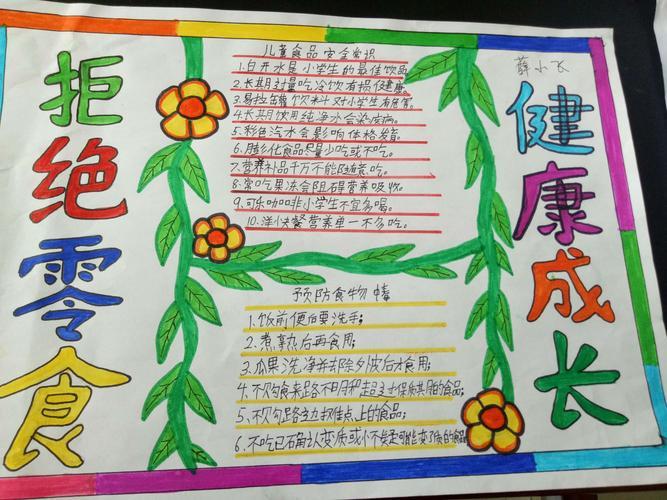 拒绝零食
儿童食品安全常识
1.白开水是小学生的最佳饮品
2.长期过量吃冷饮有损健康。
3.易拉罐饮料对小学生有危害。
4.长期饮用纯净水会染疾病。
5.彩色汽水会影响体格发育。
6.膨化食品尽量少吃或不吃。
7.营养补品千万不能随意吃。
8.常吃果冻会阻碍营养吸收。
9.可乐咖啡小学生不宜多喝。
10.洋快餐营养单一不多吃。
预防食物
1.饭前便后要洗手;
2.煮熟后再食用;
3.瓜果洗净并去除外皮后才食用;
4.不购食来路不明和超过保质期的食品;
5.不购路边摊点上的食品;
6.不吃已确认变质或怀疑可能变了质的食品
薛小飞
健康成长